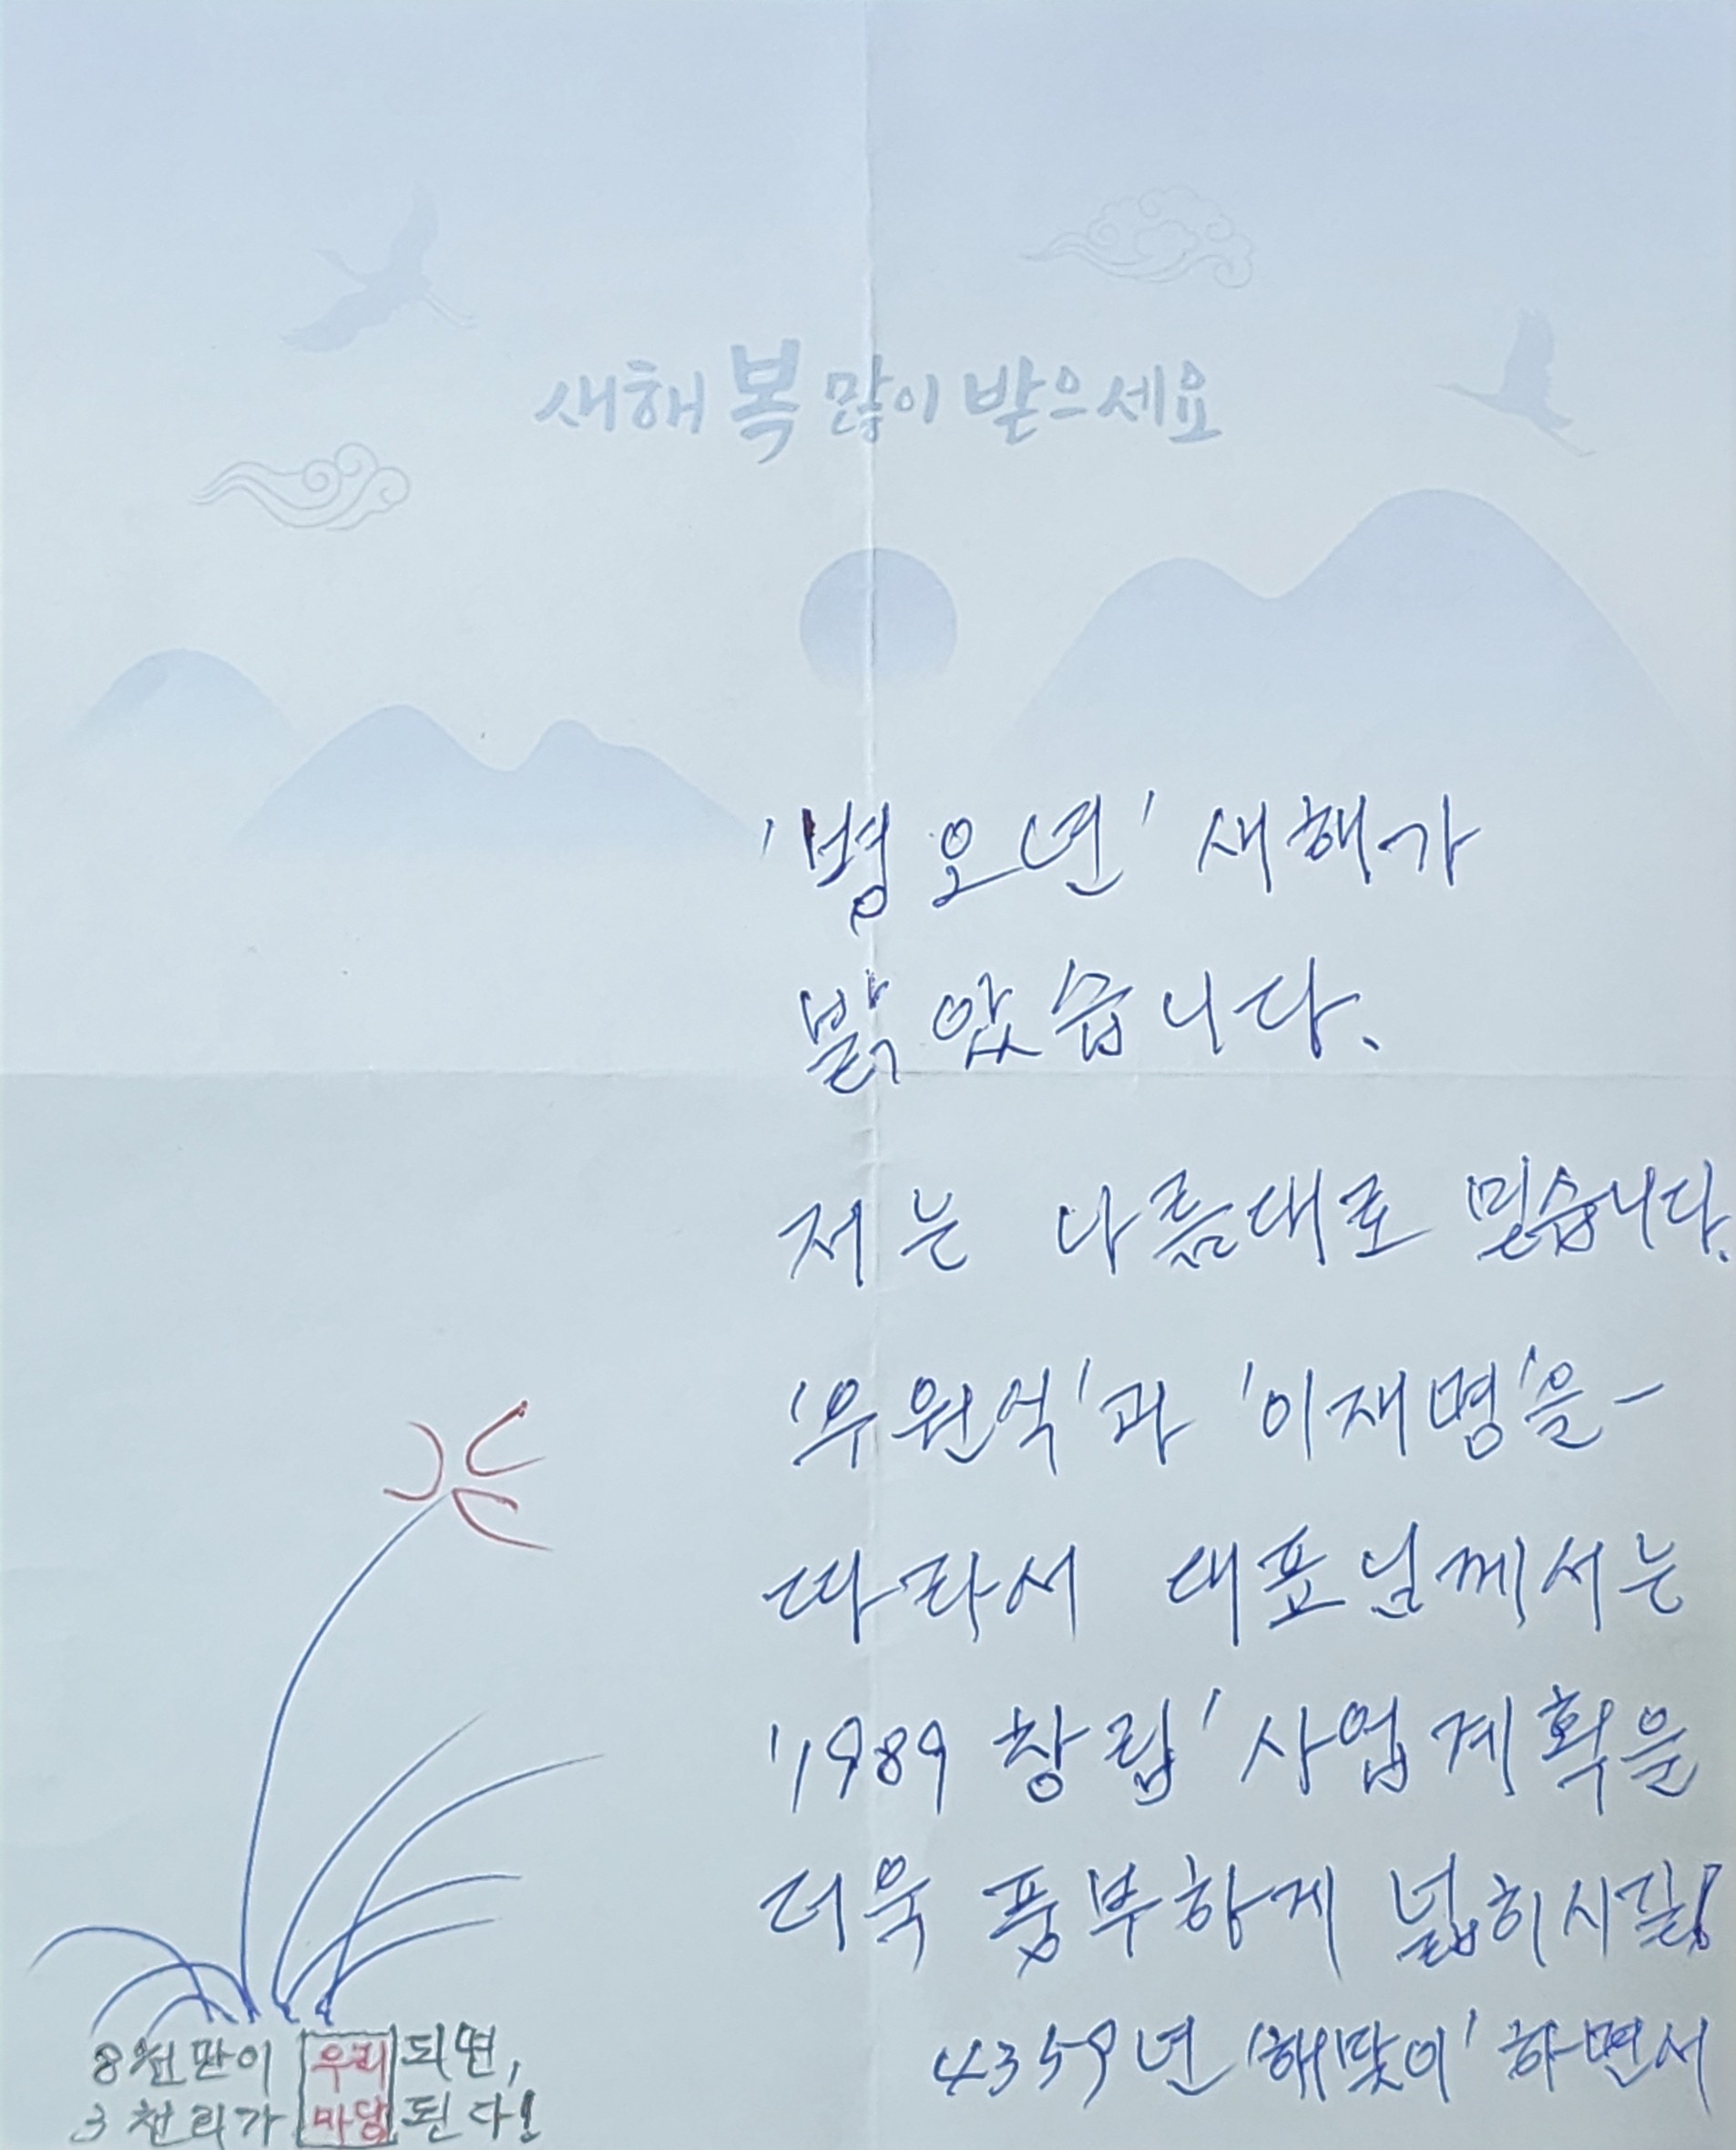 새해 복 많이 받으세요
'병오년' 새해가
밝았습니다.
저는 나름대로 믿습니다.
'우원식'과 '이재명'을-
따라서 대표님께서는
'1989 창립' 사업계획을
더욱 풍부하게 넓히시길!
4359년 '해맞이' 하면서
8천만이 우리 되면,
3천리가 마당 된다!